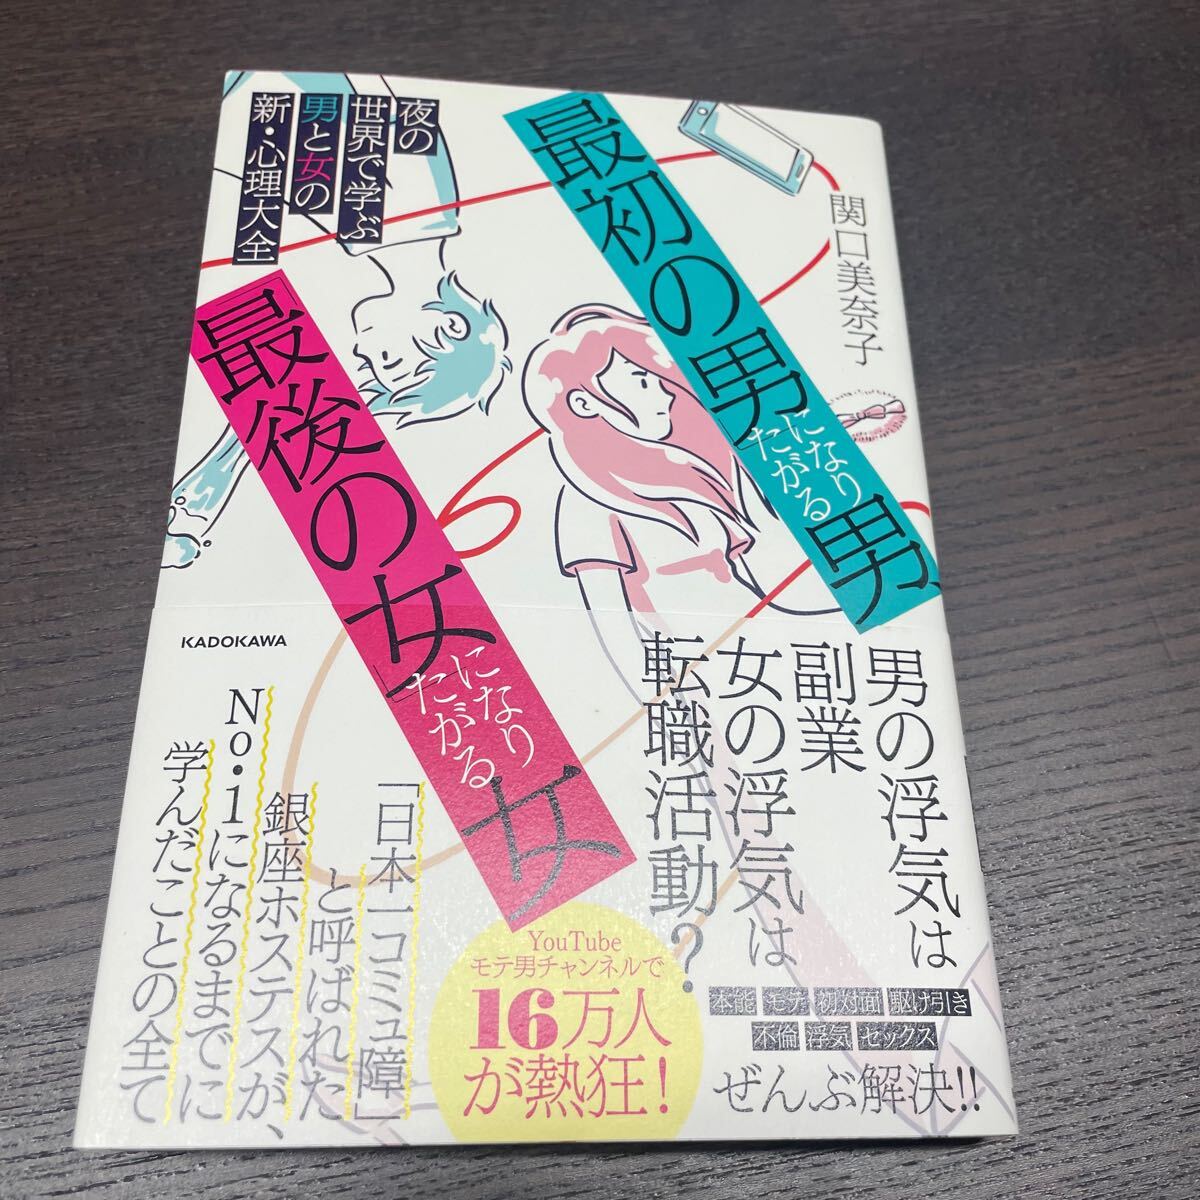 「最初の男」になり
たがる男、
「最後の女」になり
たがる女
夜の
世界で学ぶ
男と女の
新・心理大全
関口美奈子
KADOKAWA
男の浮気は
副業
女の浮気は
転職活動？
「日本一コミュ障」
と呼ばれた
銀座ホステスが、
No.1になるまでに
学んだことの全て
YouTube
モテ男チャンネルで
16万人
が熱狂！
本能 モテ 初対面 駆け引き
不倫 浮気 セックス
ぜんぶ解決!!